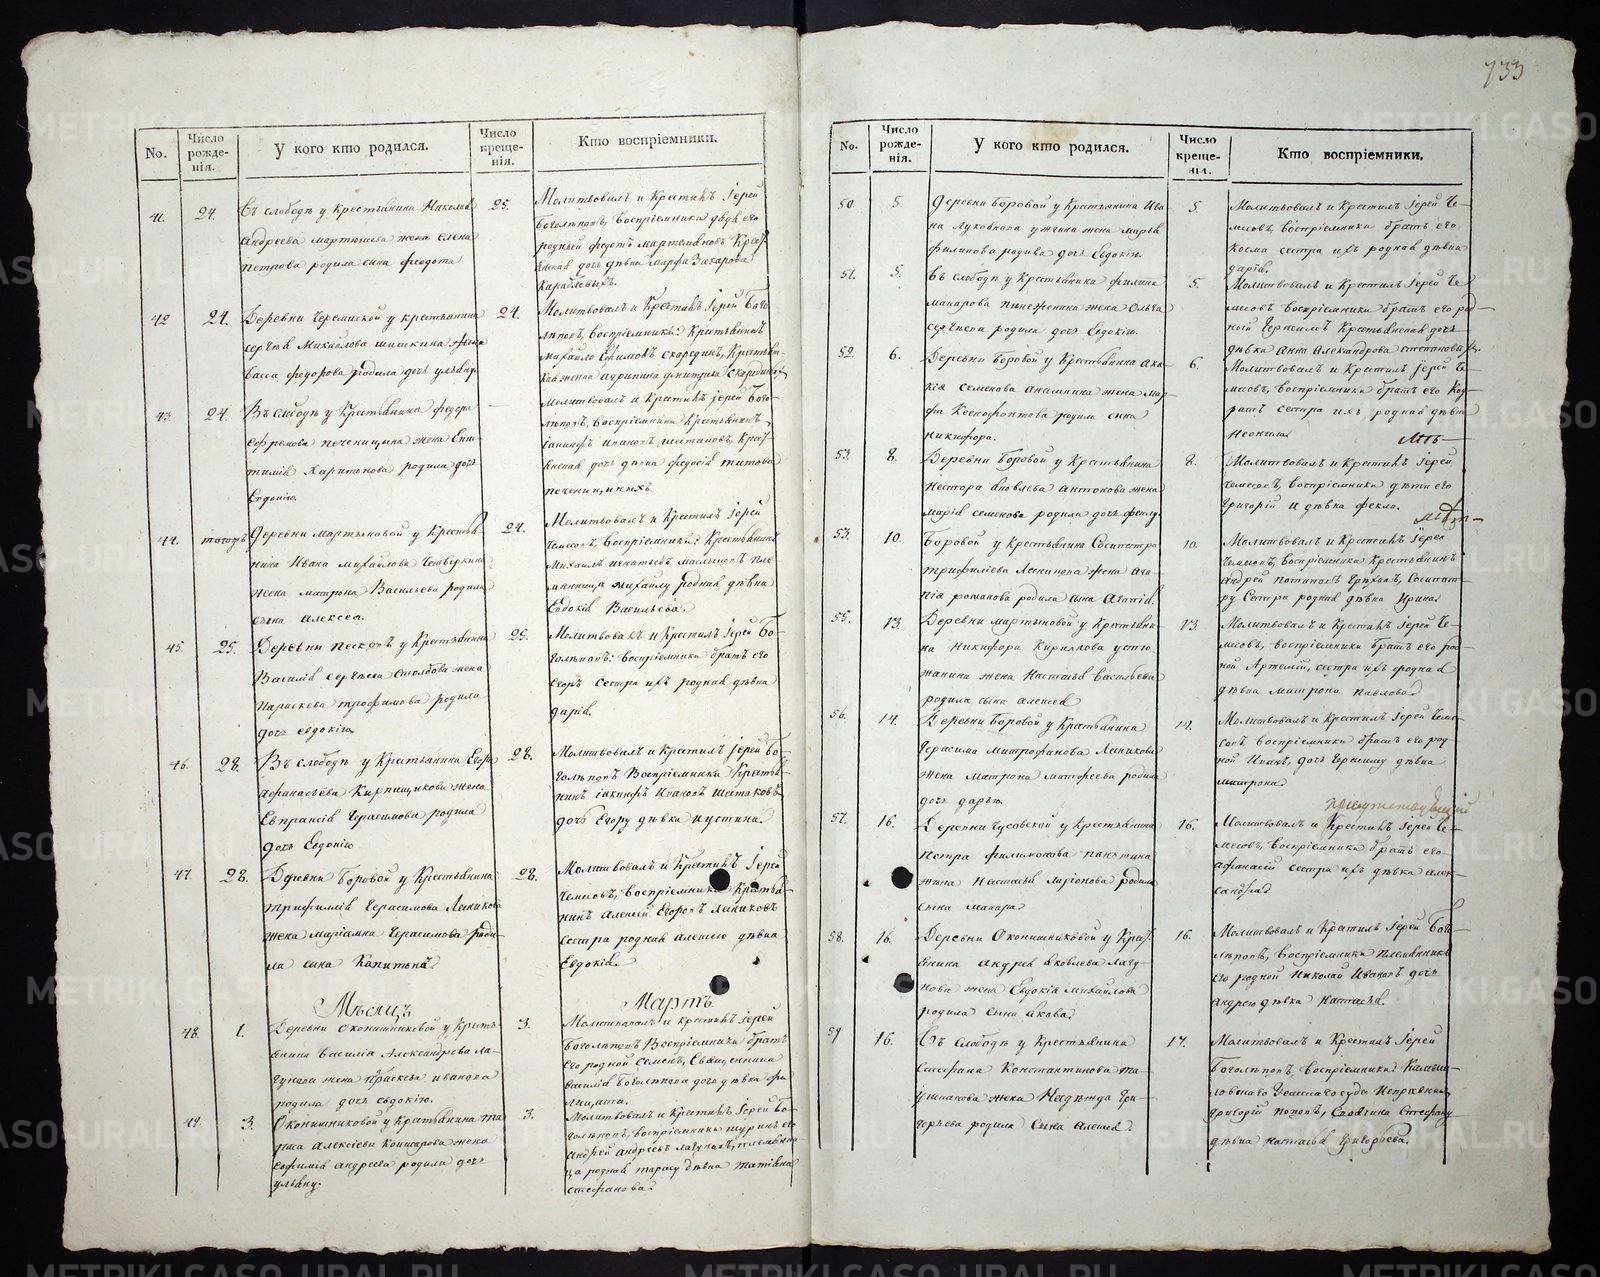 733
No.
Число рожде-нія.
У кого кто родился.
Число креще-нія.
Кто воспріемники.
41.
24.
Въ слободѣ у Крестьянина Николая
Андреева Мартюшева жена Елена
Петрова родила сына Феодота
25.
Молитвовалъ и Крестилъ Іерей
Боголѣповъ, Воспріемники дядя его
родный Федотъ Мартемьяновъ
дочь дѣвка Марфа Захарова
42
24.
Деревни Черемиской у крестьянина
Сергѣя Михайлова Шишкина жена
Васса Федорова родила дочь Ульяну
24.
Молитвовалъ и Крестилъ Іерей Бого-
лѣповъ, Воспріемники: Крестьянинъ
Михайло Ефимовъ Скарединъ,
жонка Агрипина Дмитріева
43.
24.
Въ слободѣ у Крестьянина Федора
Ефремова Печеницына жена Епи-
тимія Харитонова родила дочь
Евдокію.
Молитвовалъ и Крестилъ Іерей Бого-
лѣповъ, Воспріемники Крестьянинъ
Іакинфъ Ивановъ Шестаковъ,
дочь дѣвка Федосія Титова
Печеницыныхъ.
44.
тогожъ
Деревни Мартьяновой у Крестья-
нина Ивана Михайлова Четверкина
жена Матрона Васильева родила
сына Алексея.
24.
Молитвовалъ и Крестилъ Іерей
Чемесовъ, Воспріемники: Крестьянинъ
Михаилъ Игнатьевъ пле-
мянница Михайлу родная дѣвка
Евдокія Васильева.
45.
25.
Деревни Песковъ у Крестьянина
Василія Сергѣева Столбова жена
Параскева Трофимова родила
дочь Евдокію
25.
Молитвовалъ и Крестилъ Іерей Бо-
голѣповъ: Воспріемники братъ его
Егоръ сестра ихъ родная дѣвка
Дарія.
46.
28.
Въ слободѣ у Крестьянина Егора
Афанасьева Кирпищикова жена
Евпраксія Герасимова родила
дочь Евдокію
28.
Молитвовалъ и Крестилъ Іерей Бо-
голѣповъ Воспріемники Крестья-
нинъ Іакинфъ Ивановъ Шестаковъ
дочь Егору дѣвка Иустина.
47
28.
Деревни Боровой у Крестьянина
Трифиллія Герасимова Аникова
жена Маріамна Герасимова роди-
ла сына Капитона
28.
Молитвовалъ и Крестилъ Іерей
Чемесовъ, Воспріемники Крестья-
нинъ Алексей Егоровъ Аниковъ
сестра родная Алексею дѣвка
Евдокія.
Мѣсяцъ
Мартъ
48.
1.
Деревни Оконишниковой у Кресть-
янина Василія Александрова Ла-
гунова жена Праскева Иванова
родила дочь Евдокію.
3.
Молитвовалъ и Крестилъ Іерей
Боголѣповъ Воспріемники братъ
его родной Семенъ, Священника
Василія Боголѣпова дочь дѣвка
49.
3.
Оконишниковой у Крестьянина Та-
раса Алексіева Коншарова жена
Евфимія Андреева родила дочь
Ульяну.
3.
Молитвовалъ и Крестилъ Іерей Бо-
голѣповъ, Воспріемники шуринъ его
Андрей Андреевъ Лагуновъ, племянни-
ца родная Тарасу дѣвка Татіана
Стефанова.
No.
Число рожде-нія.
У кого кто родился.
Число креще-нія.
Кто воспріемники.
50
5.
Деревни Боровой у Крестьянина Ива-
на Лукоянова жена Марья
Филипова родила дочь Евдокію.
5.
Молитвовалъ и Крестилъ Іерей Че-
месовъ, Воспріемники братъ его
Козма сестра ихъ родная дѣвка
Дарія.
51.
5.
Въ слободѣ у Крестьянина Филипа
Макарова Пинеженина жена Ольга
Сергѣева родила дочь Евдокію.
5.
Молитвовалъ и Крестилъ Іерей Че-
месовъ Воспріемники братъ его ро-
ной Герасимъ Крестьянская дочь
дѣвка Анна Александрова
52.
6.
Деревни Боровой у Крестьянина Ака-
кія Семенова жена Мар-
фа Ксенофонтова родила сына
Никифора.
6.
Молитвовалъ и Крестилъ Іерей Че-
месовъ, Воспріемники братъ его
сестра ихъ родная дѣвка
Неонила
53.
8.
Деревни Боровой у Крестьянина
Нестора Яковлева Антонова жена
Марія Семенова родила дочь Феклу.
8.
Молитвовалъ и Крестилъ Іерей
Чемесовъ, Воспріемники дѣти его
Григорій и дѣвка Фекла.
53.
10.
Боровой у Крестьянина Сосипатра
Трифиліева Аникова жена Ага-
пія Романова родила сына Агапія.
10.
Молитвовалъ и Крестилъ Іерей
Чемесовъ, Воспріемники Крестьянинъ
Андрей Потаповъ Сосипат-
ру сестра родная дѣвка Ирина.
55.
13.
Деревни Мартьяновой у Крестьяни-
на Никифора Кириллова Устю-
жанина жена Настасья Васильева
родила сына Алексея
13.
Молитвовалъ и Крестилъ Іерей Че-
месовъ, Воспріемники братъ его ро-
ной Артемій, сестра ихъ родная
дѣвка Матрона Павлова.
56.
14.
Деревни Боровой у Крестьянина
Герасима Митрофанова Аникова
жена Матрона Матфеева родила
дочь Дарью.
14.
Молитвовалъ и Крестилъ Іерей Чеме-
совъ Воспріемники братъ его род-
ной Иванъ, дочь Герасиму дѣвка
Матрона.
57.
16.
Деревни Чусовской у Крестьянина
Петра Филимонова Панетина
жена Настасья Ларіонова родила
сына Макара.
16.
Молитвовалъ и Крестилъ Іерей Че-
месовъ, Воспріемники братъ его
Афанасей сестра ихъ дѣвка Алек-
сандра.
58.
16.
Деревни Оконишниковой у Крест-
янина Андрея Яковлева Лагу-
нова жена Евдокія Михайлова
родила сына Якова.
16.
Молитвовалъ и Крестилъ Іерей Бого-
лѣповъ, Воспріемники племянникъ
его родной Николай Ивановъ дочь
Андрею дѣвка Настасья.
59
16.
Въ Слободѣ у Крестьянина
Стефана Константинова
жена Надежда Гри-
горьева родила сына Алексея.
17.
Молитвовалъ и Крестилъ Іерей
Боголѣповъ, Воспріемники: Камыш-
ловскаго Земскаго суда Исправникъ
Григорій Поповъ, Стефану
дѣвка Настасья Григорьева.